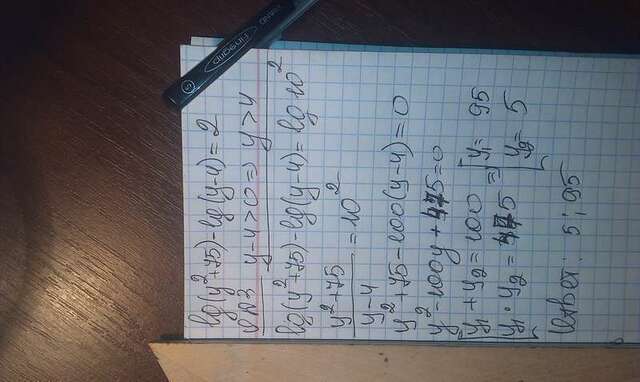 lg(y²+75)-lg(y-4)=2
ОДЗ y-4>0 => y>4
lg(y²+75)-lg(y-4)=lg10²
y²+75
y-4
=10²
y²+75-100(y-4)=0
y²-100y+475=0
y₁+y₂=100
y₁·y₂=475
=>
y₁=95
y₂=5
Ответ: 5; 95
Fingrip